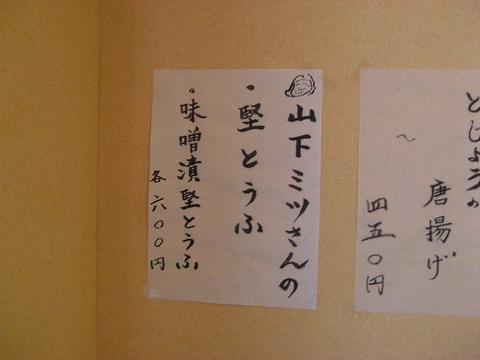 山下ミツさんの
・堅とうふ
・味噌漬堅とうふ
各六〇〇円
どじょうの
唐揚げ
四五〇円